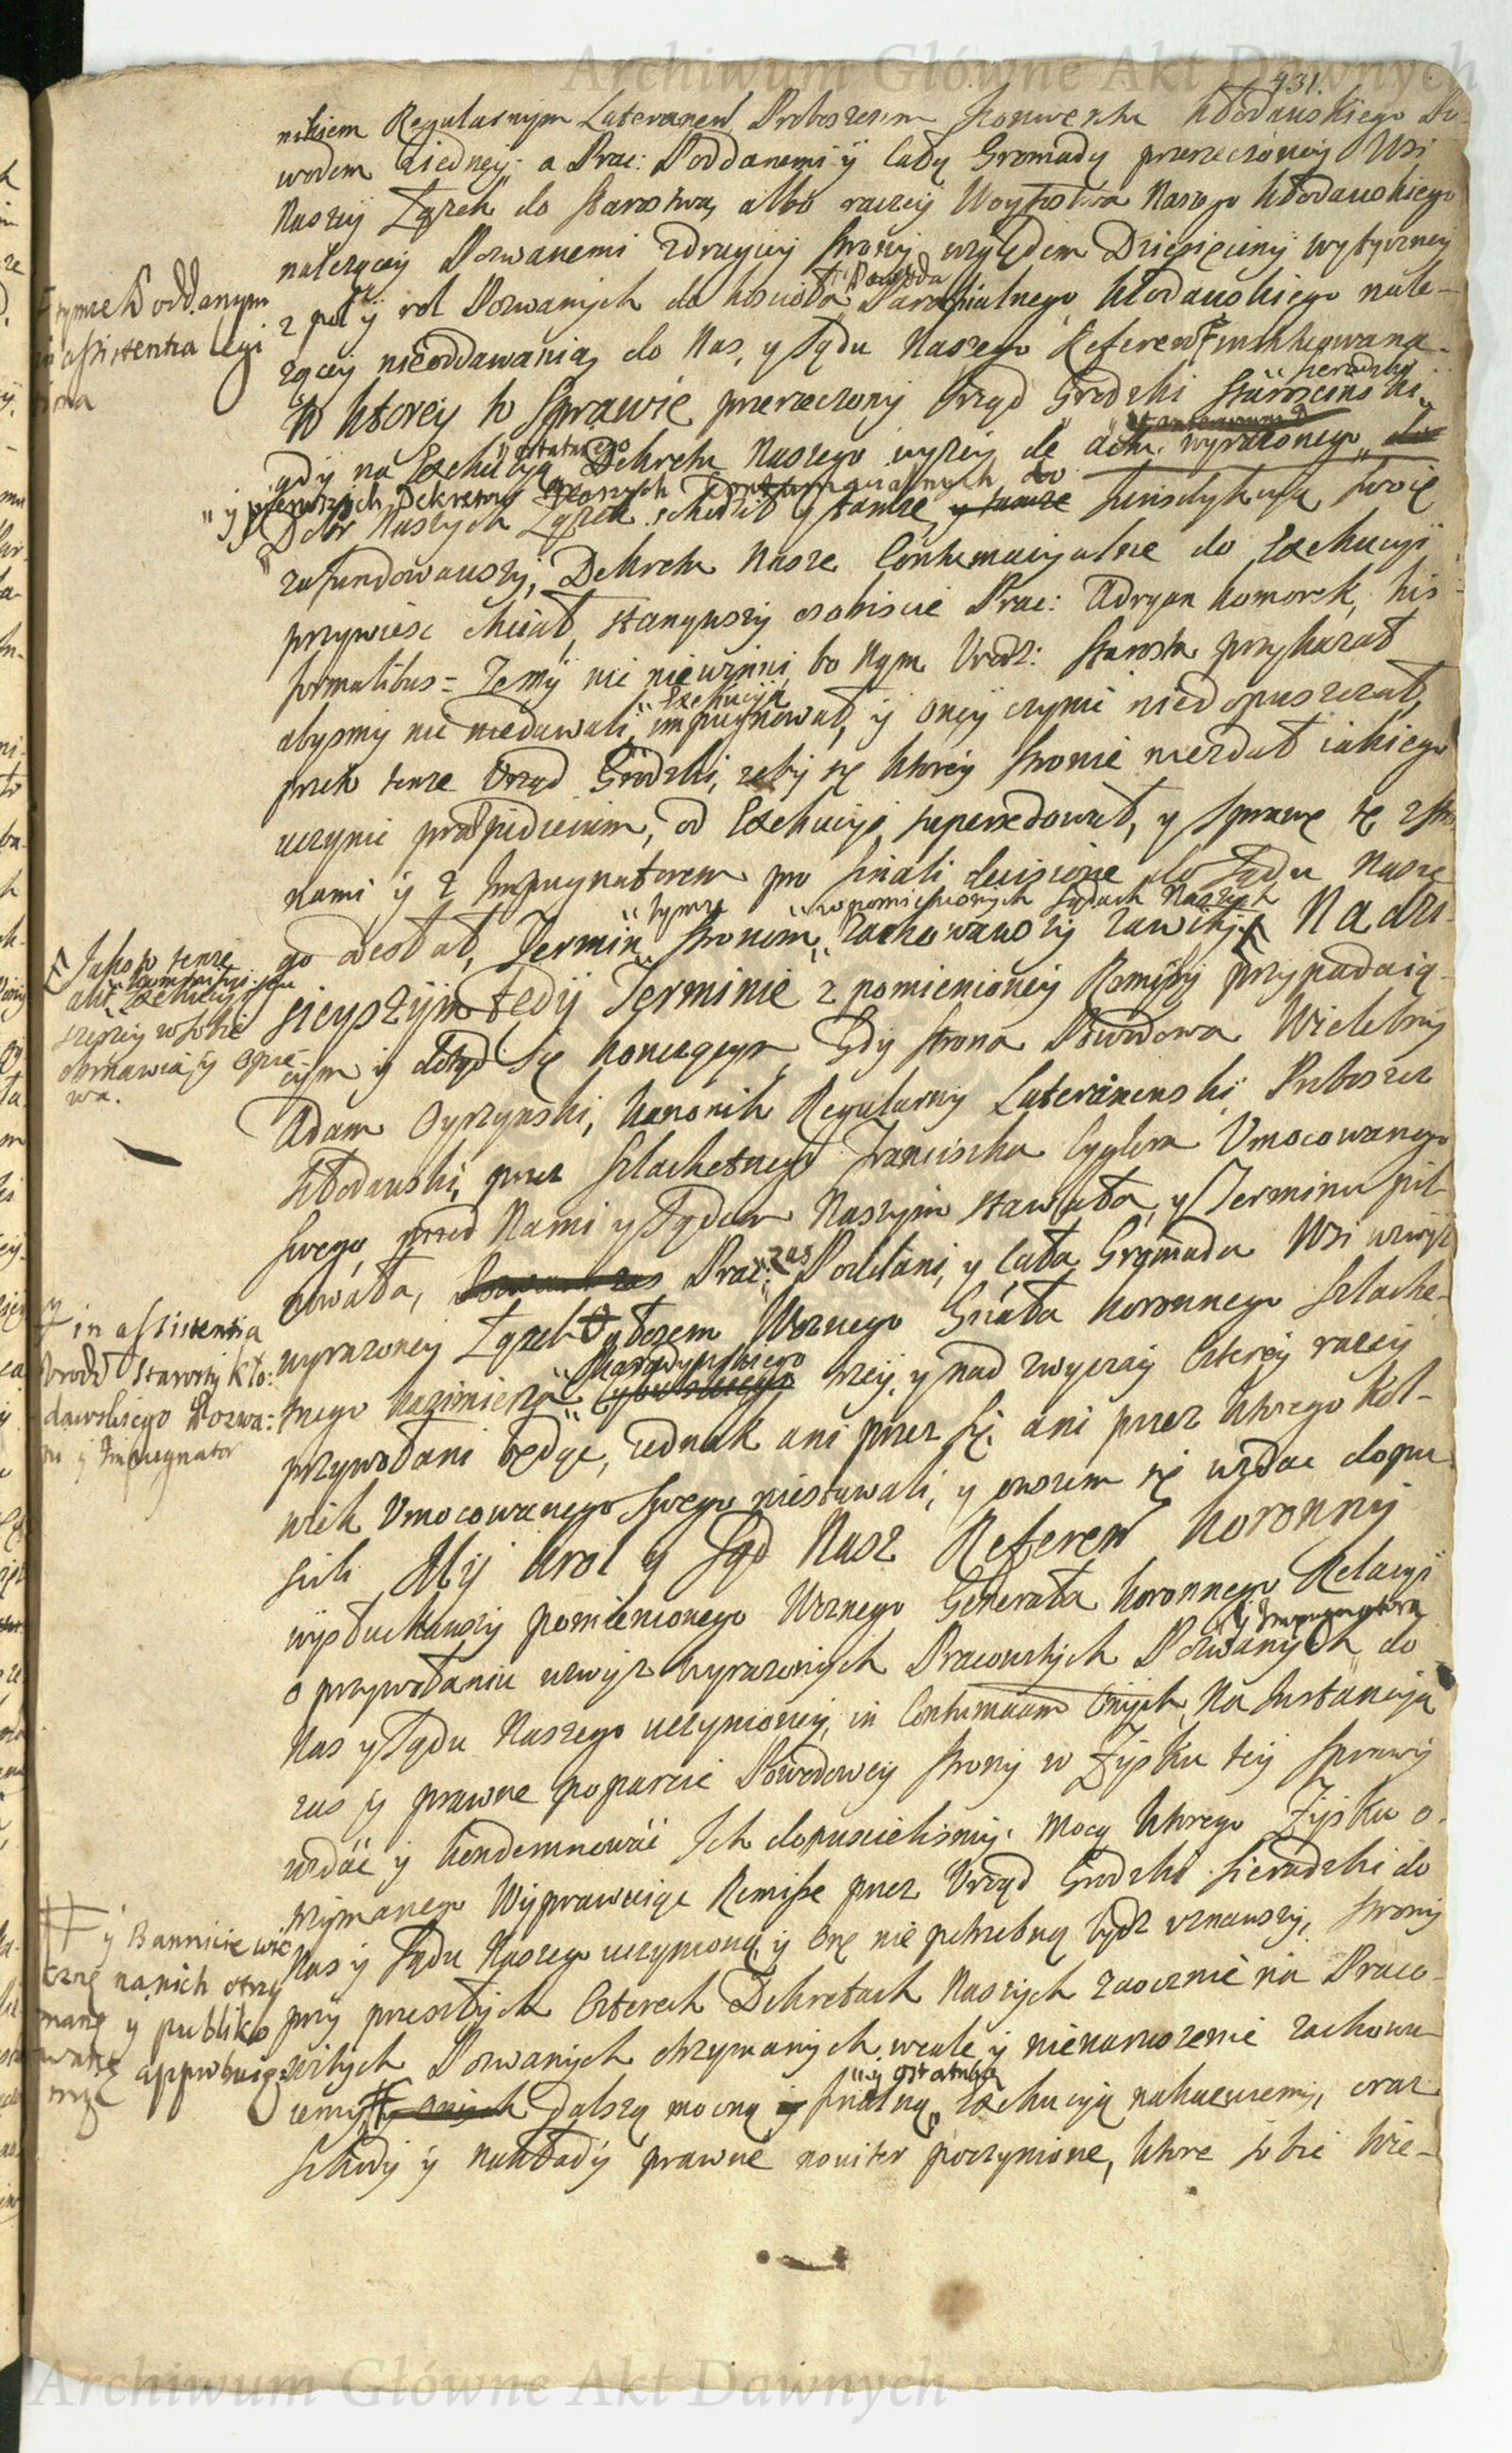 Archiwum Główne Akt Dawnych
431.
nikiem Regularnym Lateranen Proboszczem Konwentu Kłodawskiego Po-
wodem ziedney: a Prac: Poddanemi ÿ całą Gromadą przerzeczoney Wsi
Naszey Łązek do Starostwa, albo raczey Woytostwa Naszego Kłodawskiego
należącey Pozwanemi zdrugiey strony, względem Dziesięciny wytyczney
"Powoda
z pol ÿ rol Pozwanych do kościoła Parochialnego Kłodawskiego nale-
żącey nieoddawania, do Nas, y Sądu Naszego Referen
W ktorey to Sprawie przerzeczony Urząd Grodzki
sieradzki
gdy na Exekucyą Dekretu Naszego wyżey de actu wyrażonego
ostatniego
"ÿ pierwszych Dekretow
Dobr Naszych Łązek schodził y tamże Jurisdykcyą swoię
zafundowawszy, Dekreta Nasze Contumacyalne do Exekucyi
przywieść chciał, stanąwszy osobiscie Prac: Adryan Komorek, his
formalibus = Żemÿ nic nie winni, bo Nąm Urodz: Starosta przykazał
abysmy nic niedawali, impugnował, ÿ oney czynic niedopuszczał,
"Exekucyą
przeto tenze Urząd Grodzki, zeby się ktorey stronie niezdał iakiego
uczynic praepudicium, od Exekucyi supersedował, y sprawę tę z stro
nami ÿ z Impugnatorem pro finali decisione do Sądu Nasze
go odesłał, Termin stronom, zachowawszy zawity, Na dzi-
"tymze "wpomienionych Sądach Naszych
sieyszÿm tedÿ Terminie z pomienioney Remissy przypadaią-
cym ÿ dotąd się kontÿnuiącym, Gdy strona Powodowa Wielebny
Adam Kanonik Regularny Lateranenski Proboszcz
Kłodawski, przez Szlachetnego Franciszka Cyglera Umocowanego
swego, przed Nami y Sądem Naszym stawała, y Terminu pil-
nowała, Prac: Poddani, y cała Gromada Wsi wzwyż
"zas
wyrażoney Łązek głosem Woznego Gnała Koronnego szlache-
tnego Kazimierza trzy, y nad zwyczay czterey razy
przywołani będąc, iednak ani przez się, ani przez ktorego kol-
wiek Umocowanego swego niestawali, y owszem się wzdac dopu
scili Mÿ Krol y Sąd Nasz Referen Koronnÿ
wÿsłuchawszy pomienionego Woznego Generała Koronnego Relacyi
"ÿ Impugnatora
o przywołaniu wzwyż wyrażonych Pracowitych Pozwanych do
Nas y Sądu Naszego uczynioney, in Contumaciam onych, Na Instancyą
zas ÿ prawne poparcie Powodowey strony w Zysku tey sprawy
wzdać ÿ kondemnować Ich dopuscilismy. Mocą ktorego Zysku o-
trzymanego Wyprawuiąc Remisse przez Urząd Grodzki Sieradzki do
Nas ÿ Sądu Naszego uczynioną, ÿ onę nie potrzebną bydz uznawszy, strony
przy przeszłych Czterech Dekretach Naszych zaocznie na Praco-
witych Pozwanych otrzymanych, wcale y nienaruszenie zachowu
iemy, dalszą mocną ÿ finalną Exekucyą nakazuiemy, oraz
"ÿ ostatnią
Szkody ÿ nakłady prawne noviter poczynione, ktore sobie Wie-
tymże Poddanym
in assistentia legi
tima
Jakoż tenze
akt Exekucyi
szerzey w sobie
obmawia, ÿ opie-
wa.
in assistentia
Urodz Starosty Kło:
dawskiego Pozwa:
ni y Impugnator
ÿ Bannicie wie
czne na nich otrzy
mane y publiko
wane approbuią
Archiwum Główne Akt Dawnych